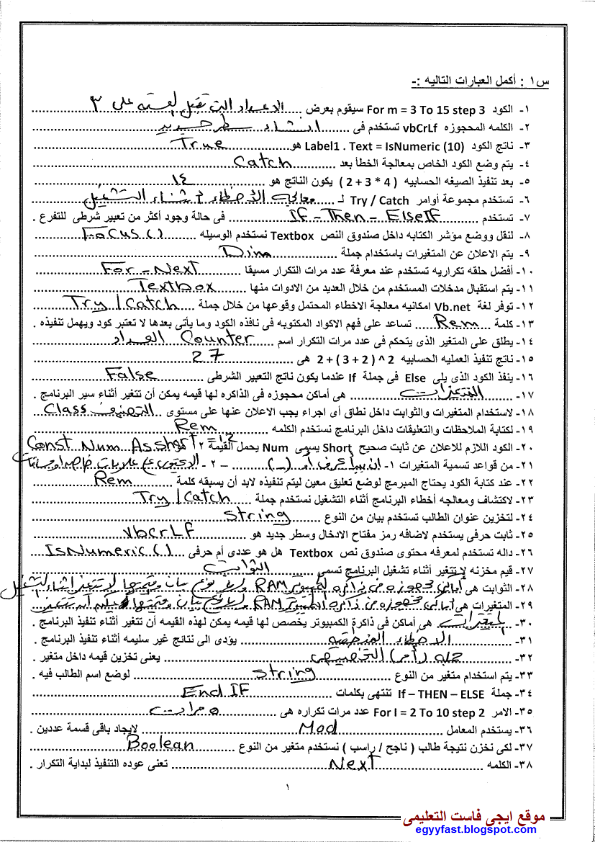 س١ : أكمل العبارات التاليه :-
١- الكود For m = 3 To 15 step 3 سيقوم بعرض الاعداد التى تقبل القسمة على ٣
٢- الكلمه المحجوزه vbCrLf تستخدم فى انشاء سطر جديد
٣- ناتج الكود Label1 . Text = IsNumeric (10) هو True
٤- يتم وضع الكود الخاص بمعالجة الخطأ بعد Catch
٥- بعد تنفيذ الصيغه الحسابيه ( 4 * 3 + 2 ) يكون الناتج هو ١٤
٦- تستخدم مجموعة أوامر Try / Catch لـ معالجة الأخطاء أثناء التشغيل
٧- تستخدم IF - Then - ElseIF فى حالة وجود أكثر من تعبير شرطى للتفرع .
٨- لنقل ووضع مؤشر الكتابه داخل صندوق النص Textbox نستخدم الوسيله Focus ( )
٩- يتم الاعلان عن المتغيرات باستخدام جملة Dim
١٠- أفضل حلقه تكراريه تستخدم عند معرفة عدد مرات التكرار مسبقا For - Next
١١- يتم استقبال مدخلات المستخدم من خلال العديد من الادوات منها Textbox
١٢- توفر لغة Vb.net امكانيه معالجة الاخطاء المحتمل وقوعها من خلال جملة Try / Catch
١٣- كلمة Rem تساعد على فهم الاكواد المكتوبه فى نافذه الكود وما يأتى بعدها لا تعتبر كود ويهمل تنفيذه .
١٤- يطلق على المتغير الذى يتحكم فى عدد مرات التكرار اسم Counter العداد
١٥- ناتج تنفيذ العمليه الحسابيه 2 ^ ( 2 + 3 ) + 2 هى 27
١٦- ينفذ الكود الذى يلى Else فى جملة If عندما يكون ناتج التعبير الشرطى False
١٧- المتغيرات هى أماكن محجوزه فى الذاكره لها قيمه يمكن أن تتغير أثناء سير البرنامج .
١٨- لاستخدام المتغيرات والثوابت داخل نطاق أى اجراء يجب الاعلان عنها على مستوى التصنيف Class
١٩- لكتابة الملاحظات والتعليقات داخل البرنامج نستخدم الكلمه Rem
٢٠- الكود اللازم للاعلان عن ثابت صحيح Short يسمى Num يحمل القيمة ٢ هو Const Num As short = 2
٢١- من قواعد تسمية المتغيرات ١- ان يبدأ بحرف أو ( _ ) ٢-
٢٢- عند كتابة الكود يحتاج المبرمج لوضع تعليق معين ليتم تنفيذه لابد أن يسبقه كلمة Rem
٢٣- لاكتشاف ومعالجه أخطاء البرنامج أثناء التشغيل نستخدم جملة Try / Catch
٢٤- لتخزين عنوان الطالب تستخدم بيان من النوع String
٢٥- ثابت حرفى يستخدم لاضافه رمز مفتاح الادخال وسطر جديد هو vbCrLf
٢٦- داله تستخدم لمعرفه محتوى صندوق نص Textbox هل هو عددى أم حرفى IsNumeric ( )
٢٧- قيم مخزنه لا تتغير أثناء تشغيل البرنامج تسمى الثوابت
٢٨- الثوابت هى أماكن محجوزه من ذاكرة الكمبيوتر RAM ولها نوع بيانات وقيمتها لا تتغير أثناء التشغيل
٢٩- المتغيرات هى أماكن محجوزه من ذاكرة الكمبيوتر RAM
٣٠- المتغيرات هى أماكن فى ذاكرة الكمبيوتر يخصص لها قيمه يمكن لهذه القيمه أن تتغير أثناء تنفيذ البرنامج .
٣١- الاخطاء المنطقيه يؤدى الى نتائج غير سليمه أثناء تنفيذ البرنامج .
٣٢- جملة ( أمر ) التخصيص يعنى تخزين قيمه داخل متغير .
٣٣- يتم استخدام متغير من النوع String لوضع اسم الطالب فيه .
٣٤- جملة If – THEN – ELSE تنتهى بكلمات End IF
٣٥- الامر For I = 2 To 10 step 2 عدد مرات تكراره هى ٥ مرات
٣٦- يستخدم المعامل Mod لايجاد باقى قسمة عددين .
٣٧- لكى نخزن نتيجة طالب ( ناجح / راسب ) نستخدم متغير من النوع Boolean
٣٨- الكلمه Next تعنى عوده التنفيذ لبداية التكرار .
١
موقع ايجي فاست التعليمى
egyyfast.blogspot.com